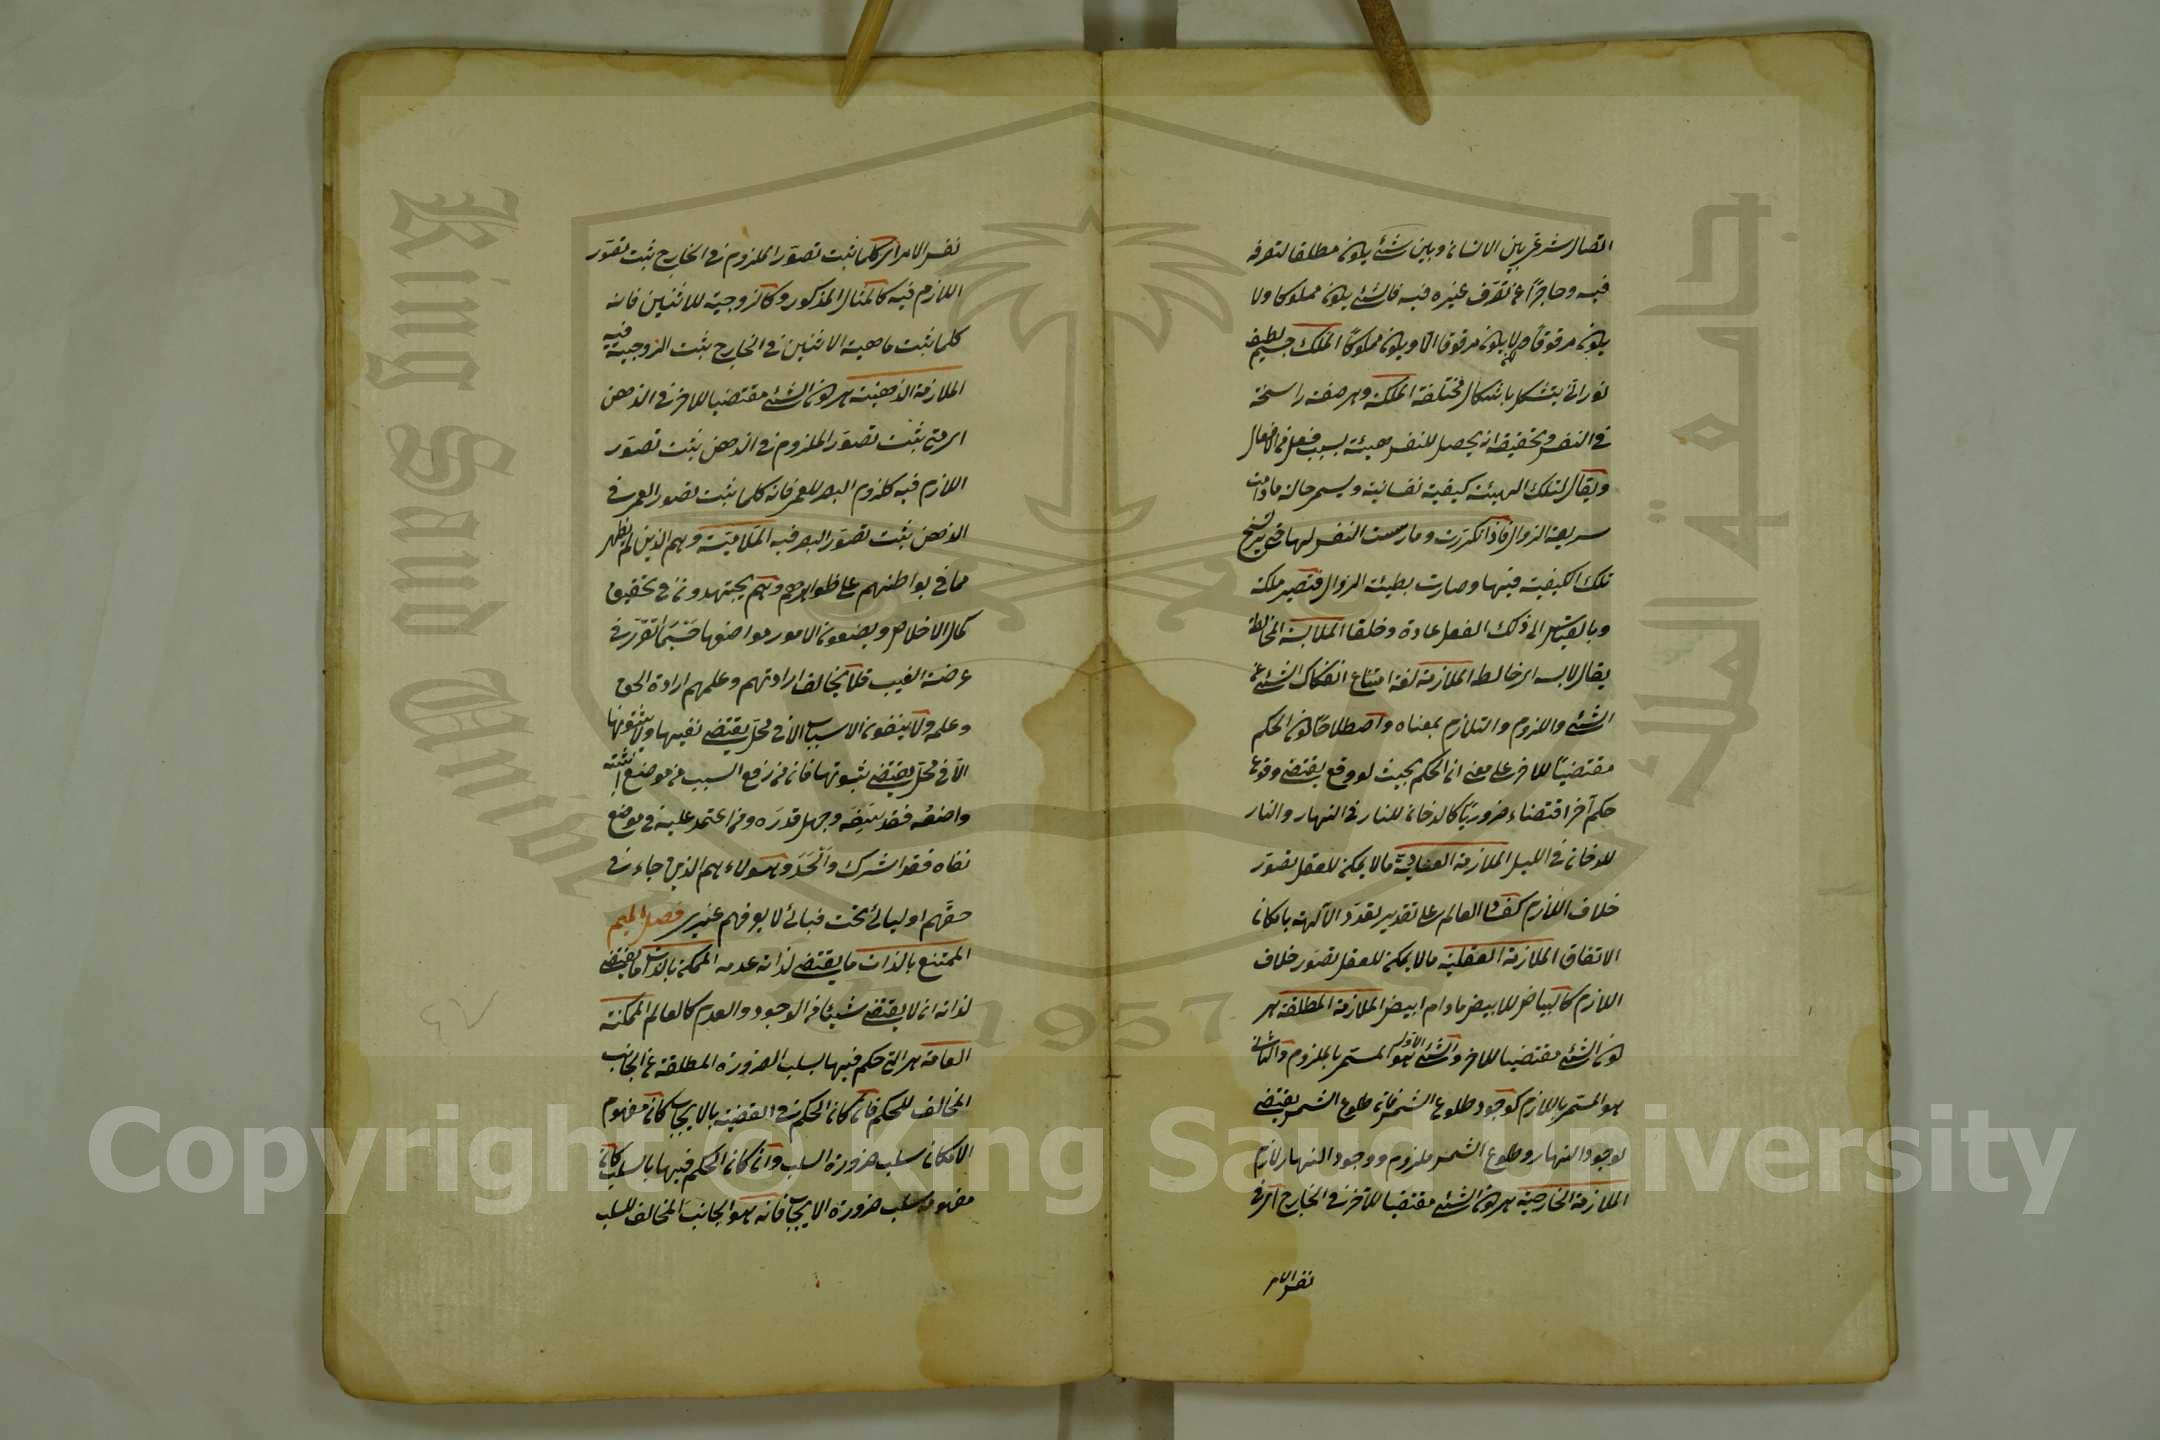 اتصال شرعي بين الانسان وبين شئ يكون مطلقا لتصرفه
فيه وحاجزا عن تصرف غيره فيه فالشئ يكون مملوكا ولا
يكون مرقوقا ولا يكون مرقوقا الا ويكون مملوكا الملك جسم لطيف
نوراني يتشكل باشكال مختلفة الملكة وهي صفة راسخة
في النفس وتحقيقه انه يحصل للنفس هيئة بسبب فعل من الافعال
ويقال لتلك الهيئة كيفية نفسانية ويسمى حالة ما دامت
سريعة الزوال فاذا تكررت ومارست النفس لها حتى ترسخ
تلك الكيفية فيها وصارت بطيئة الزوال فتصير ملكة
وبالقياس الى ذلك الفعل عادة وخلقا الملابسة المخالطة
يقال لابسه اي خالطه الملازمة لغة امتناع انفكاك الشئ عن
الشئ واللزوم والتلازم بمعناه واصطلاحا كون الحكم
مقتضيا للاخر على معنى ان الحكم بحيث لو وقع يقتضي وقوع
حكم آخر اقتضاء ضروريا كالدخان للنار في النهار والنار
للدخان في الليل الملازمة العادية ما لا يمكن للعقل تصور
خلاف اللازم كفساد العالم على تقدير تعدد الآلهة بامكان
الاتفاق الملازمة العقلية ما لا يمكن للعقل تصور خلاف
اللازم كالبياض للابيض ما دام ابيض الملازمة المطلقة هي
كون الشئ مقتضيا للاخر والشئ الاول هو المستمر بالملزوم والثاني
هو المستمر باللازم كوجود طلوع الشمس فان طلوع الشمس يقتضي
لوجود النهار وطلوع الشمس ملزوم ووجود النهار لازم
الملازمة الخارجية هي كون الشئ مقتضيا للآخر في الخارج اي في
نفس الامر
نفس الامر اي كلما ثبت تصور الملزوم في الخارج ثبت تصور
اللازم فيه كالمثال المذكور وكالزوجية للاثنين فانه
كلما ثبت ماهية الاثنين في الخارج ثبت الزوجية فيه
الملازمة الذهنية هي كون الشئ مقتضيا للاخر في الذهن
اي متى ثبت تصور الملزوم في الذهن ثبت تصور
اللازم فيه كلزوم البصر للعمى فانه كلما ثبت تصور العمى في
الذهن ثبت تصور البصر فيه الملامتية وهم الذين لم يظهر
مما في بواطنهم على ظواهرهم وهم يجتهدون في تحقيق
كمال الاخلاص ويضعون الامور مواضعها حسبما تقرر في
عرضة الغيب فلا يخالف ارادتهم وعلمهم ارادة الحق
وعلمه ولا ينفون الاسباب الا في محل يقتضي نفيها ولا يثبتونها
الا في محل يقتضي ثبوتها فان من رفع السبب من موضع اثبته
واضعه فيه فقد سفه وجهل قدره ومن اعتمد عليه في موضع
نفاه فقد اشرك والحد وهؤلاء هم الذين جاء في
حقهم اوليائي تحت قبائي لا يعرفهم غيري فصل الميم
الممتنع بالذات ما يقتضي لذاته عدمه الممكن بالذات ما يقتضي
لذاته ان لا يقتضي شيئا من الوجود والعدم كالعالم الممكنة
العامة هي التي حكم فيها بسلب الضرورة المطلقة عن الجانب
المخالف للحكم فان كان الحكم في القضية بالايجاب كان مفهوم
الامكان سلب ضرورة السلب وان كان الحكم فيها بالسلب كان
مفهومه سلب ضرورة الايجاب فانه هو الجانب المخالف للسلب
King Saud University
جامعة الملك سعود
1957
Copyright © King Saud University